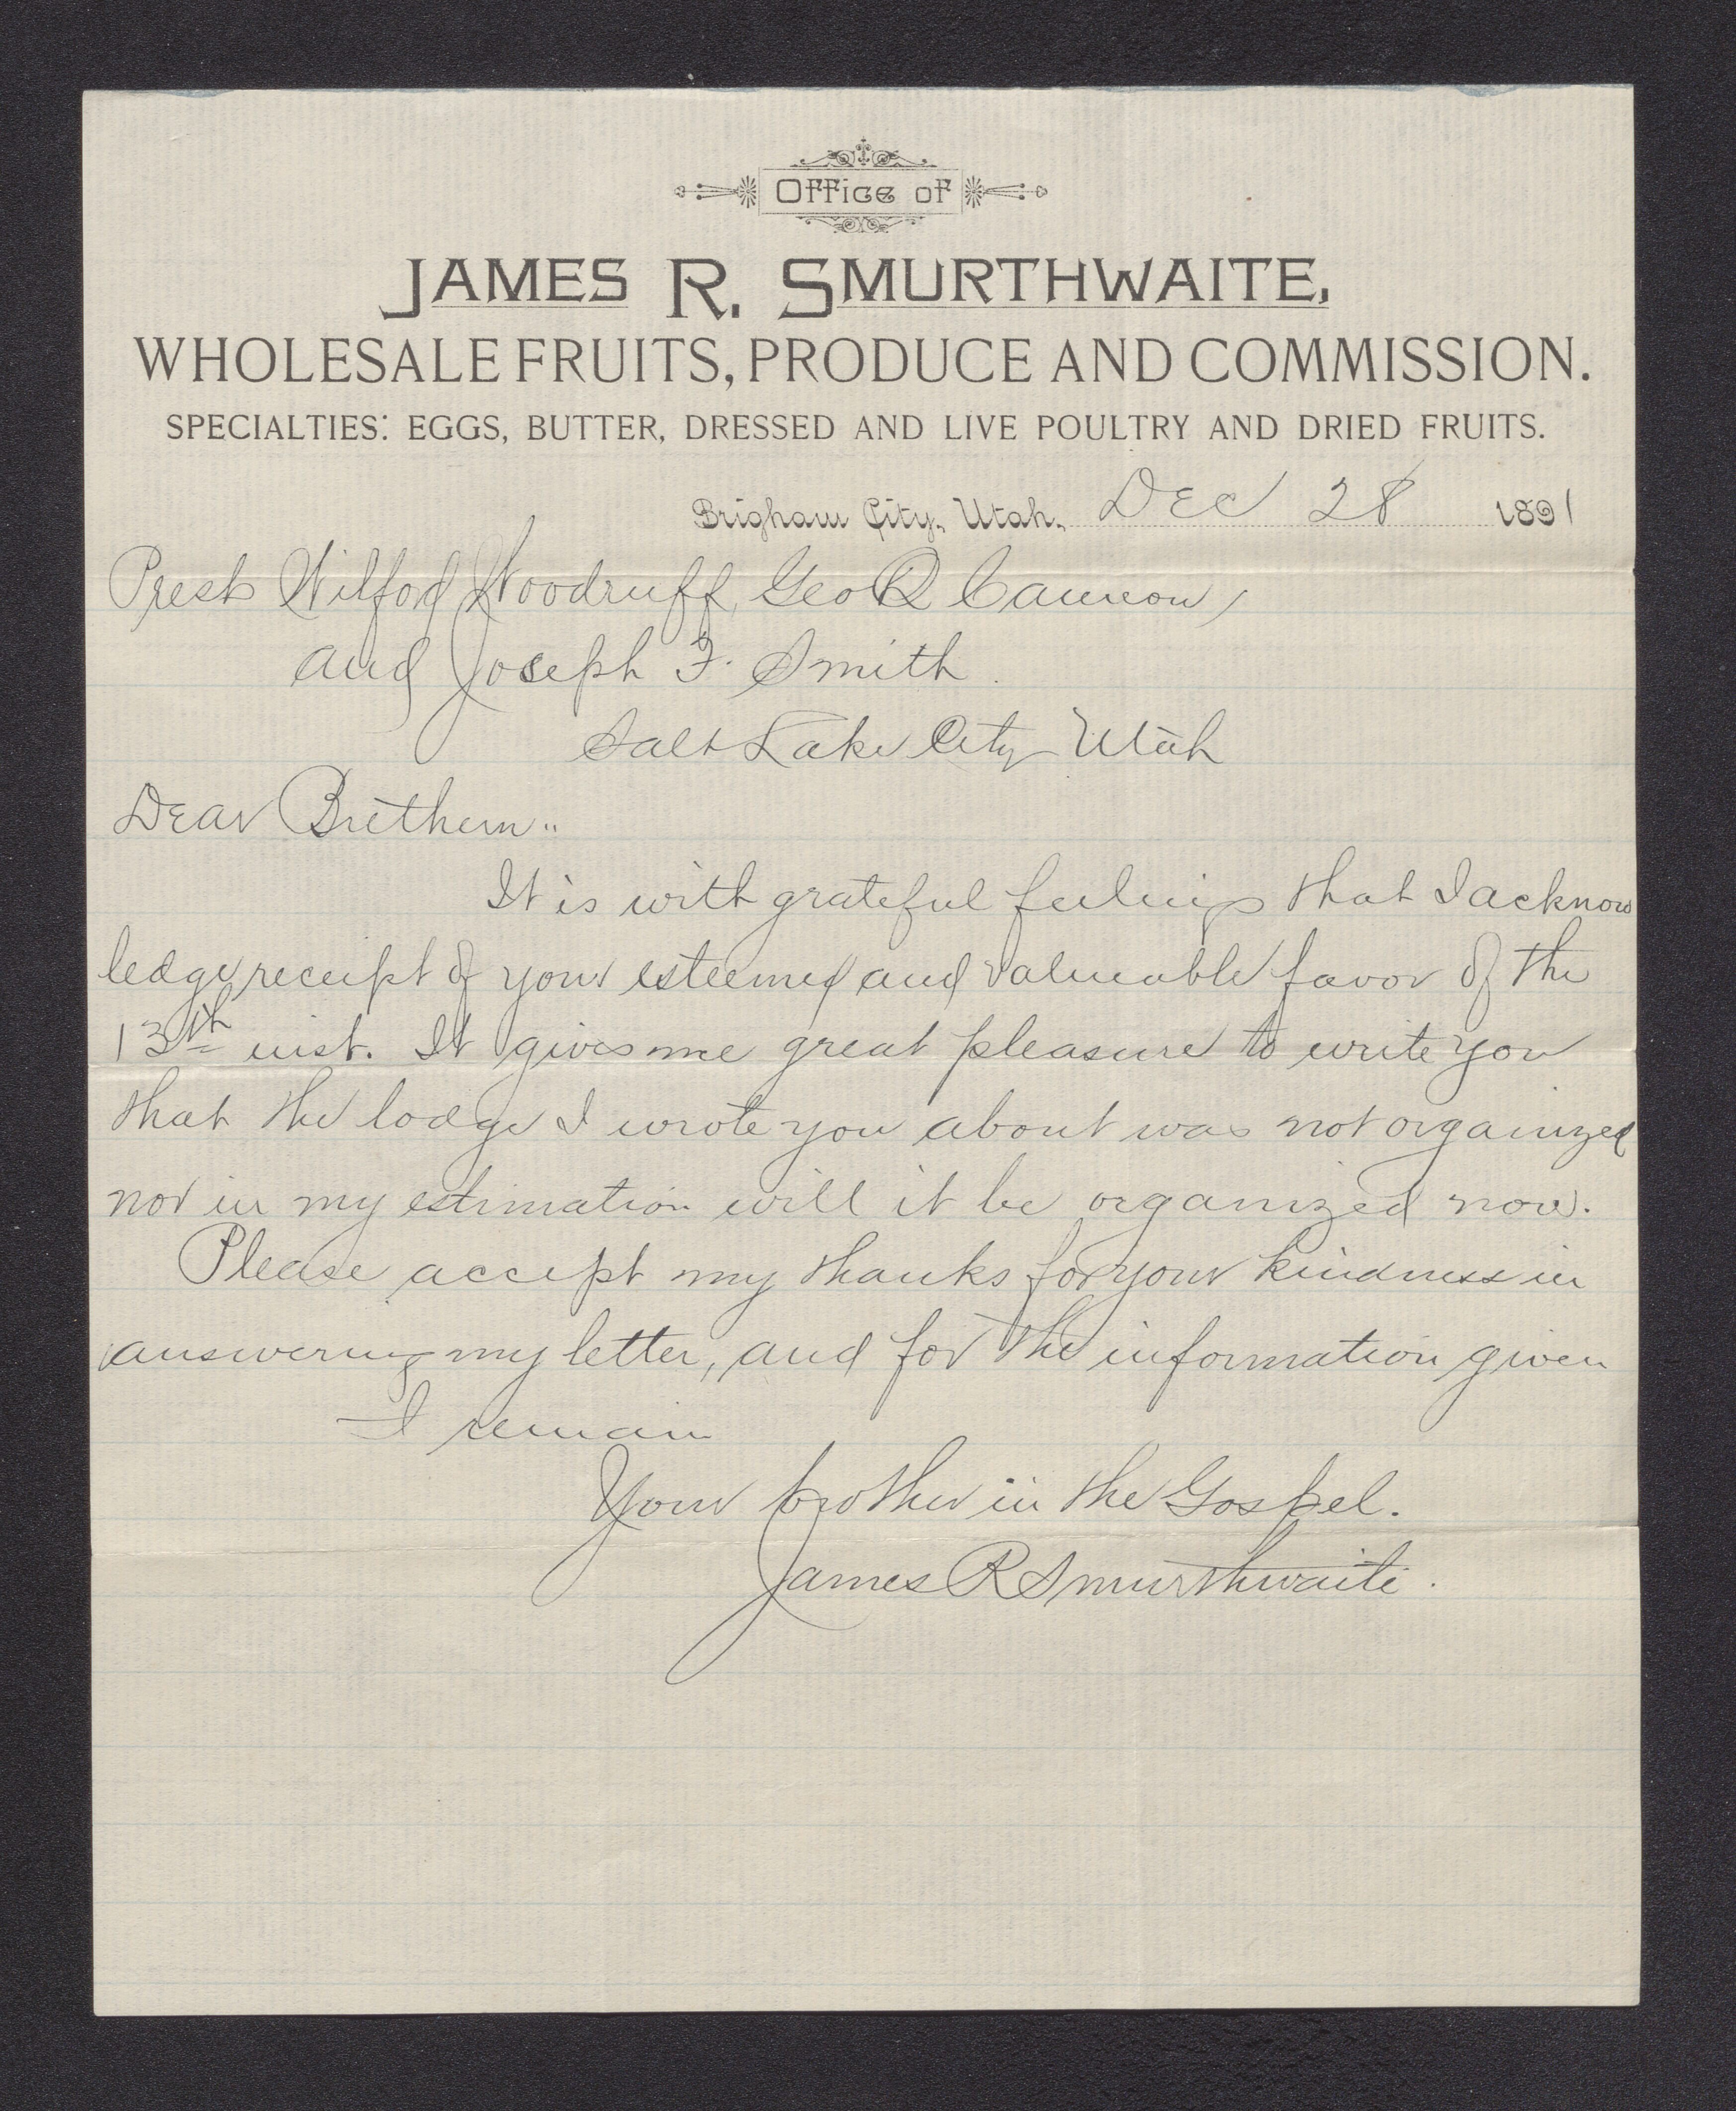 Office of
JAMES R. SMURTHWAITE,
WHOLESALE FRUITS, PRODUCE AND COMMISSION.
SPECIALTIES: EGGS, BUTTER, DRESSED AND LIVE POULTRY AND DRIED FRUITS.
Brigham City, Utah, Dec 28 1891
Prest Wilford Woodruff, Geo Q Cannon,
and Joseph F. Smith.
Salt Lake City Utah
Dear Brethern..
It is with grateful feelings that I acknow
ledge receipt of your esteemed and valueable favor of the
13th inst. It gives me great pleasure to write you
that the lodge I wrote you about was not orgainized
nor in my estimation will it be organized now.
Please accept my thanks for your kindness in
answering my letter, and for the information given
I remain
Your brother in the Gospel.
James R Smurthwaite.